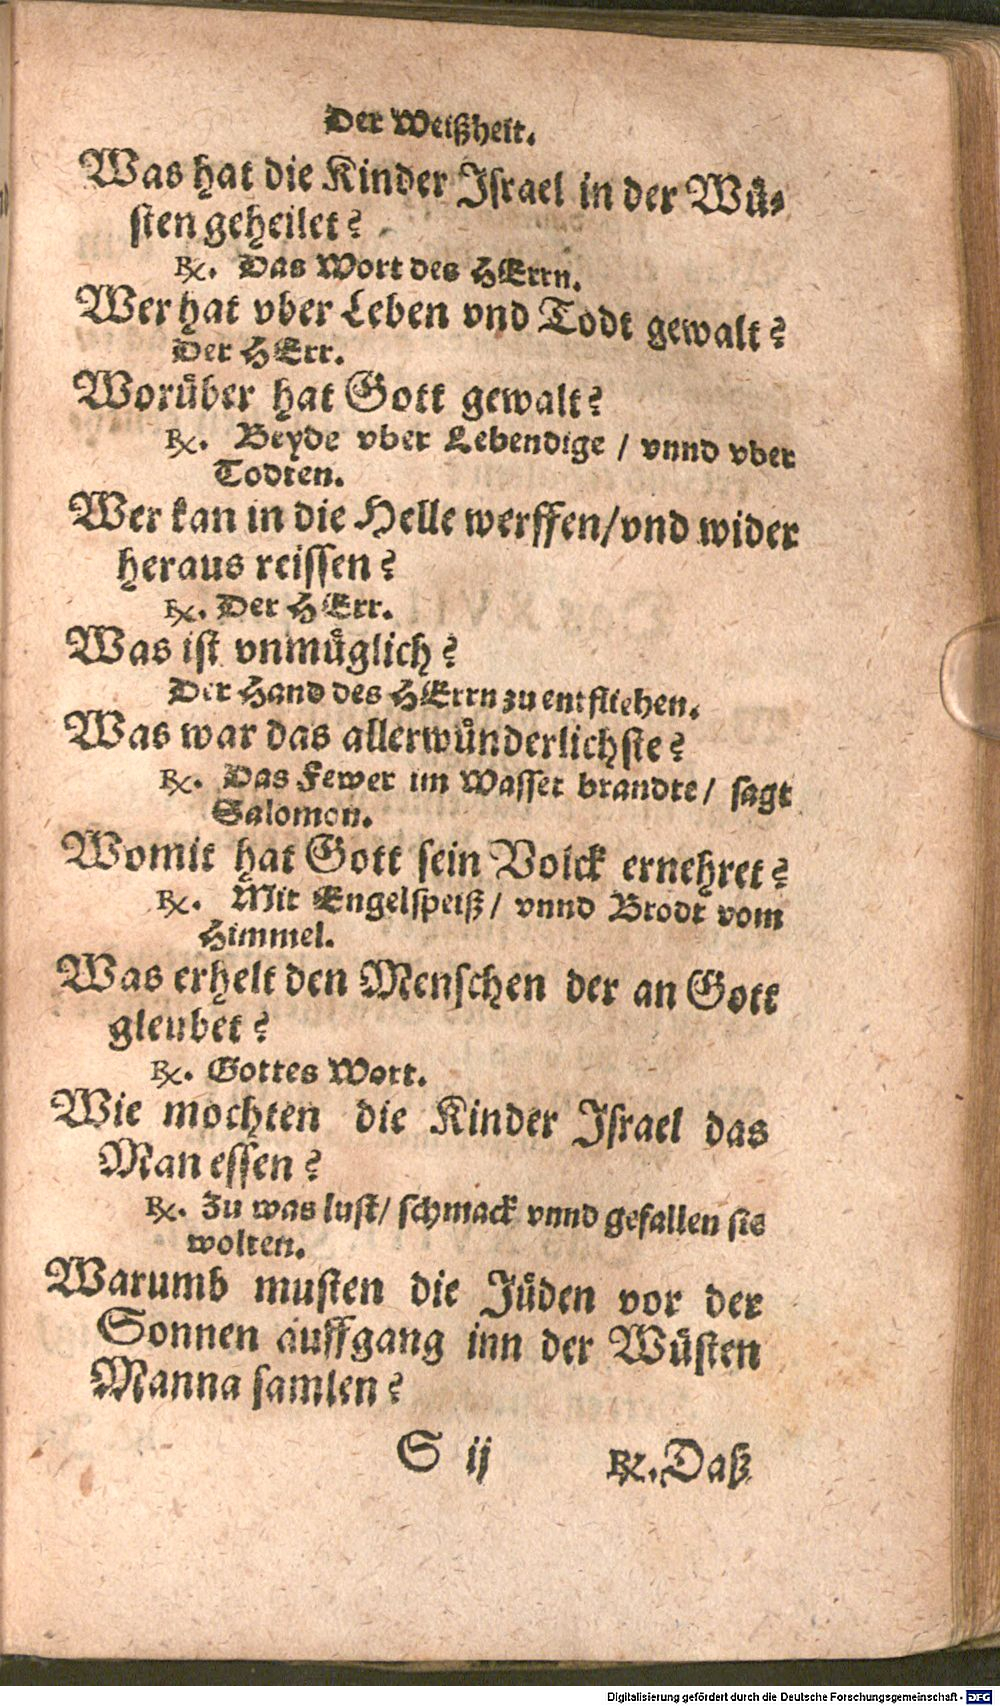 Der Weißheit.
Was hat die Kinder Israel in der Wü-
sten geheilet?
℞. Das Wort des HErrn.
Wer hat vber Leben vnd Todt gewalt?
Der HErr.
Worüber hat Gott gewalt?
℞. Beyde vber Lebendige / vnnd vber
Todten.
Wer kan in die Helle werffen/vnd wider
heraus reissen?
℞. Der HErr.
Was ist vnmüglich?
Der Hand des HErrn zu entfliehen.
Was war das allerwünderlichste?
℞. Das Fewer im Wasser brandte / sagt
Salomon.
Womit hat Gott sein Volck ernehret?
℞. Mit Engelspeiß / vnnd Brodt vom
Himmel.
Was erhelt den Menschen der an Gott
gleubet?
℞. Gottes Wort.
Wie mochten die Kinder Israel das
Man essen?
℞. Zu was lust/ schmack vnnd gefallen sie
wolten.
Warumb musten die Jüden vor der
Sonnen auffgang inn der Wüsten
Manna samlen?
S ij ℞. Daß
Digitalisierung gefördert durch die Deutsche Forschungsgemeinschaft - DFG